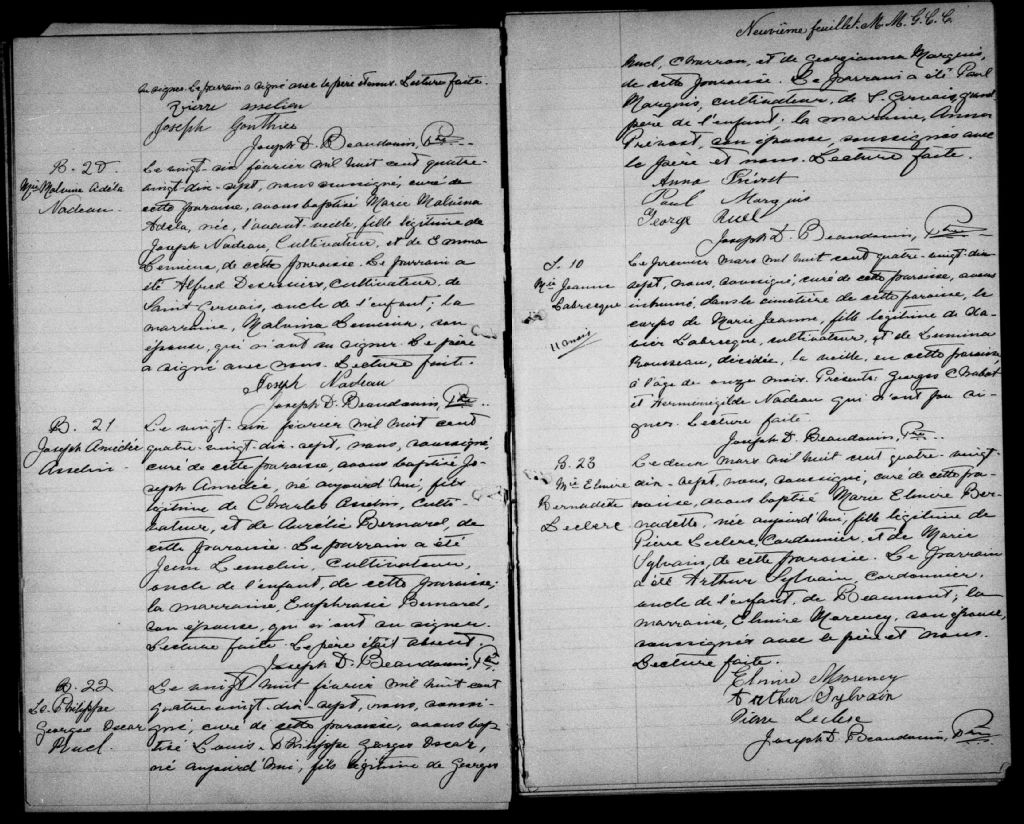 su signer. Le parrain a signé avec le père et nous. Lecture faite.
Pierre Asselin
Joseph Gonthier
Joseph D. Beaudouin, Ptre
B. 20
Mie Malvina Adéla
Nadeau.
Le vingt-six février mil huit cent quatre-
vingt-dix-sept, nous soussigné, curé de
cette paroisse, avons baptisé Marie Malvina
Adéla, née, l'avant-veille, fille légitime de
Joseph Nadeau, Cultivateur, et de Emma
Lemieux, de cette paroisse. Le parrain a
été Alfred Desrosiers, cultivateur, de
Saint Gervais, oncle de l'enfant; la
marraine, Malvina Lemieux, son
épouse, qui n'ont su signer. Le père
a signé avec nous. Lecture faite.
Joseph Nadeau
Joseph D. Beaudouin, Ptre
B. 21
Joseph Amédée
Asselin
Le vingt-six février mil huit cent
quatre-vingt-dix-sept, nous, soussigné,
curé de cette paroisse, avons baptisé Jo-
seph Amédée, né aujourd'hui, fils
légitime de Charles Asselin, Culti-
vateur, et de Aurélie Bernard, de
cette paroisse. Le parrain a été
Jean Lemelin, Cultivateur,
oncle de l'enfant, de cette paroisse;
la marraine, Euphrasie Bernard,
son épouse, qui n'ont su signer.
Lecture faite. Le père était absent.
Joseph D. Beaudouin, Ptre
B. 22
Ls. Philippe
Georges Oscar
Ruel.
Le vingt huit février mil huit cent
quatre-vingt-dix-sept, nous, soussi-
gné, curé de cette paroisse, avons bap-
tisé Louis-Philippe Georges Oscar,
né aujourd'hui, fils légitime de Georges
Neuvième feuillet. M. M. G. C. C.
Ruel, Charron, et de Georgianna Marquis,
de cette paroisse. Le parrain a été Paul
Marquis, cultivateur, de S. Gervais, grand-
père de l'enfant; la marraine, Anna
Prévost, son épouse, soussignés avec
le père et nous. Lecture faite.
Anna Prévost
Paul Marquis
George Ruel
Joseph D. Beaudouin, Ptre
S. 10
Mie Jeanne
Labrecque
11 mois
Le premier mars mil huit cent quatre-vingt-dix
sept, nous, soussigné, curé de cette paroisse, avons
inhumé, dans le cimetière de cette paroisse, le
corps de Marie Jeanne, fille légitime de Xa-
vier Labrecque, cultivateur, et de Lumina
Rousseau, décédée, la veille, en cette paroisse,
à l'âge de onze mois. Présents: Georges Chabot
et Herménégilde Nadeau qui n'ont pu si-
gner. Lecture faite.
Joseph D. Beaudouin, Ptre
B. 23
Mie Elmire
Bernadette
Leclerc
Le deux mars mil huit cent quatre-vingt-
dix-sept, nous, soussigné, curé de cette pa-
roisse, avons baptisé Marie Elmire Ber-
nadette, née aujourd'hui, fille légitime de
Pierre Leclerc, Cordonnier, et de Marie
Sylvain, de cette paroisse. Le parrain
a été Arthur Sylvain, cordonnier,
oncle de l'enfant, de Beaumont; la
marraine, Elmire Morency, son épouse,
soussignés avec le père et nous.
Lecture faite.
Elmire Morency
Arthur Sylvain
Pierre Leclerc
Joseph D. Beaudouin, Ptre